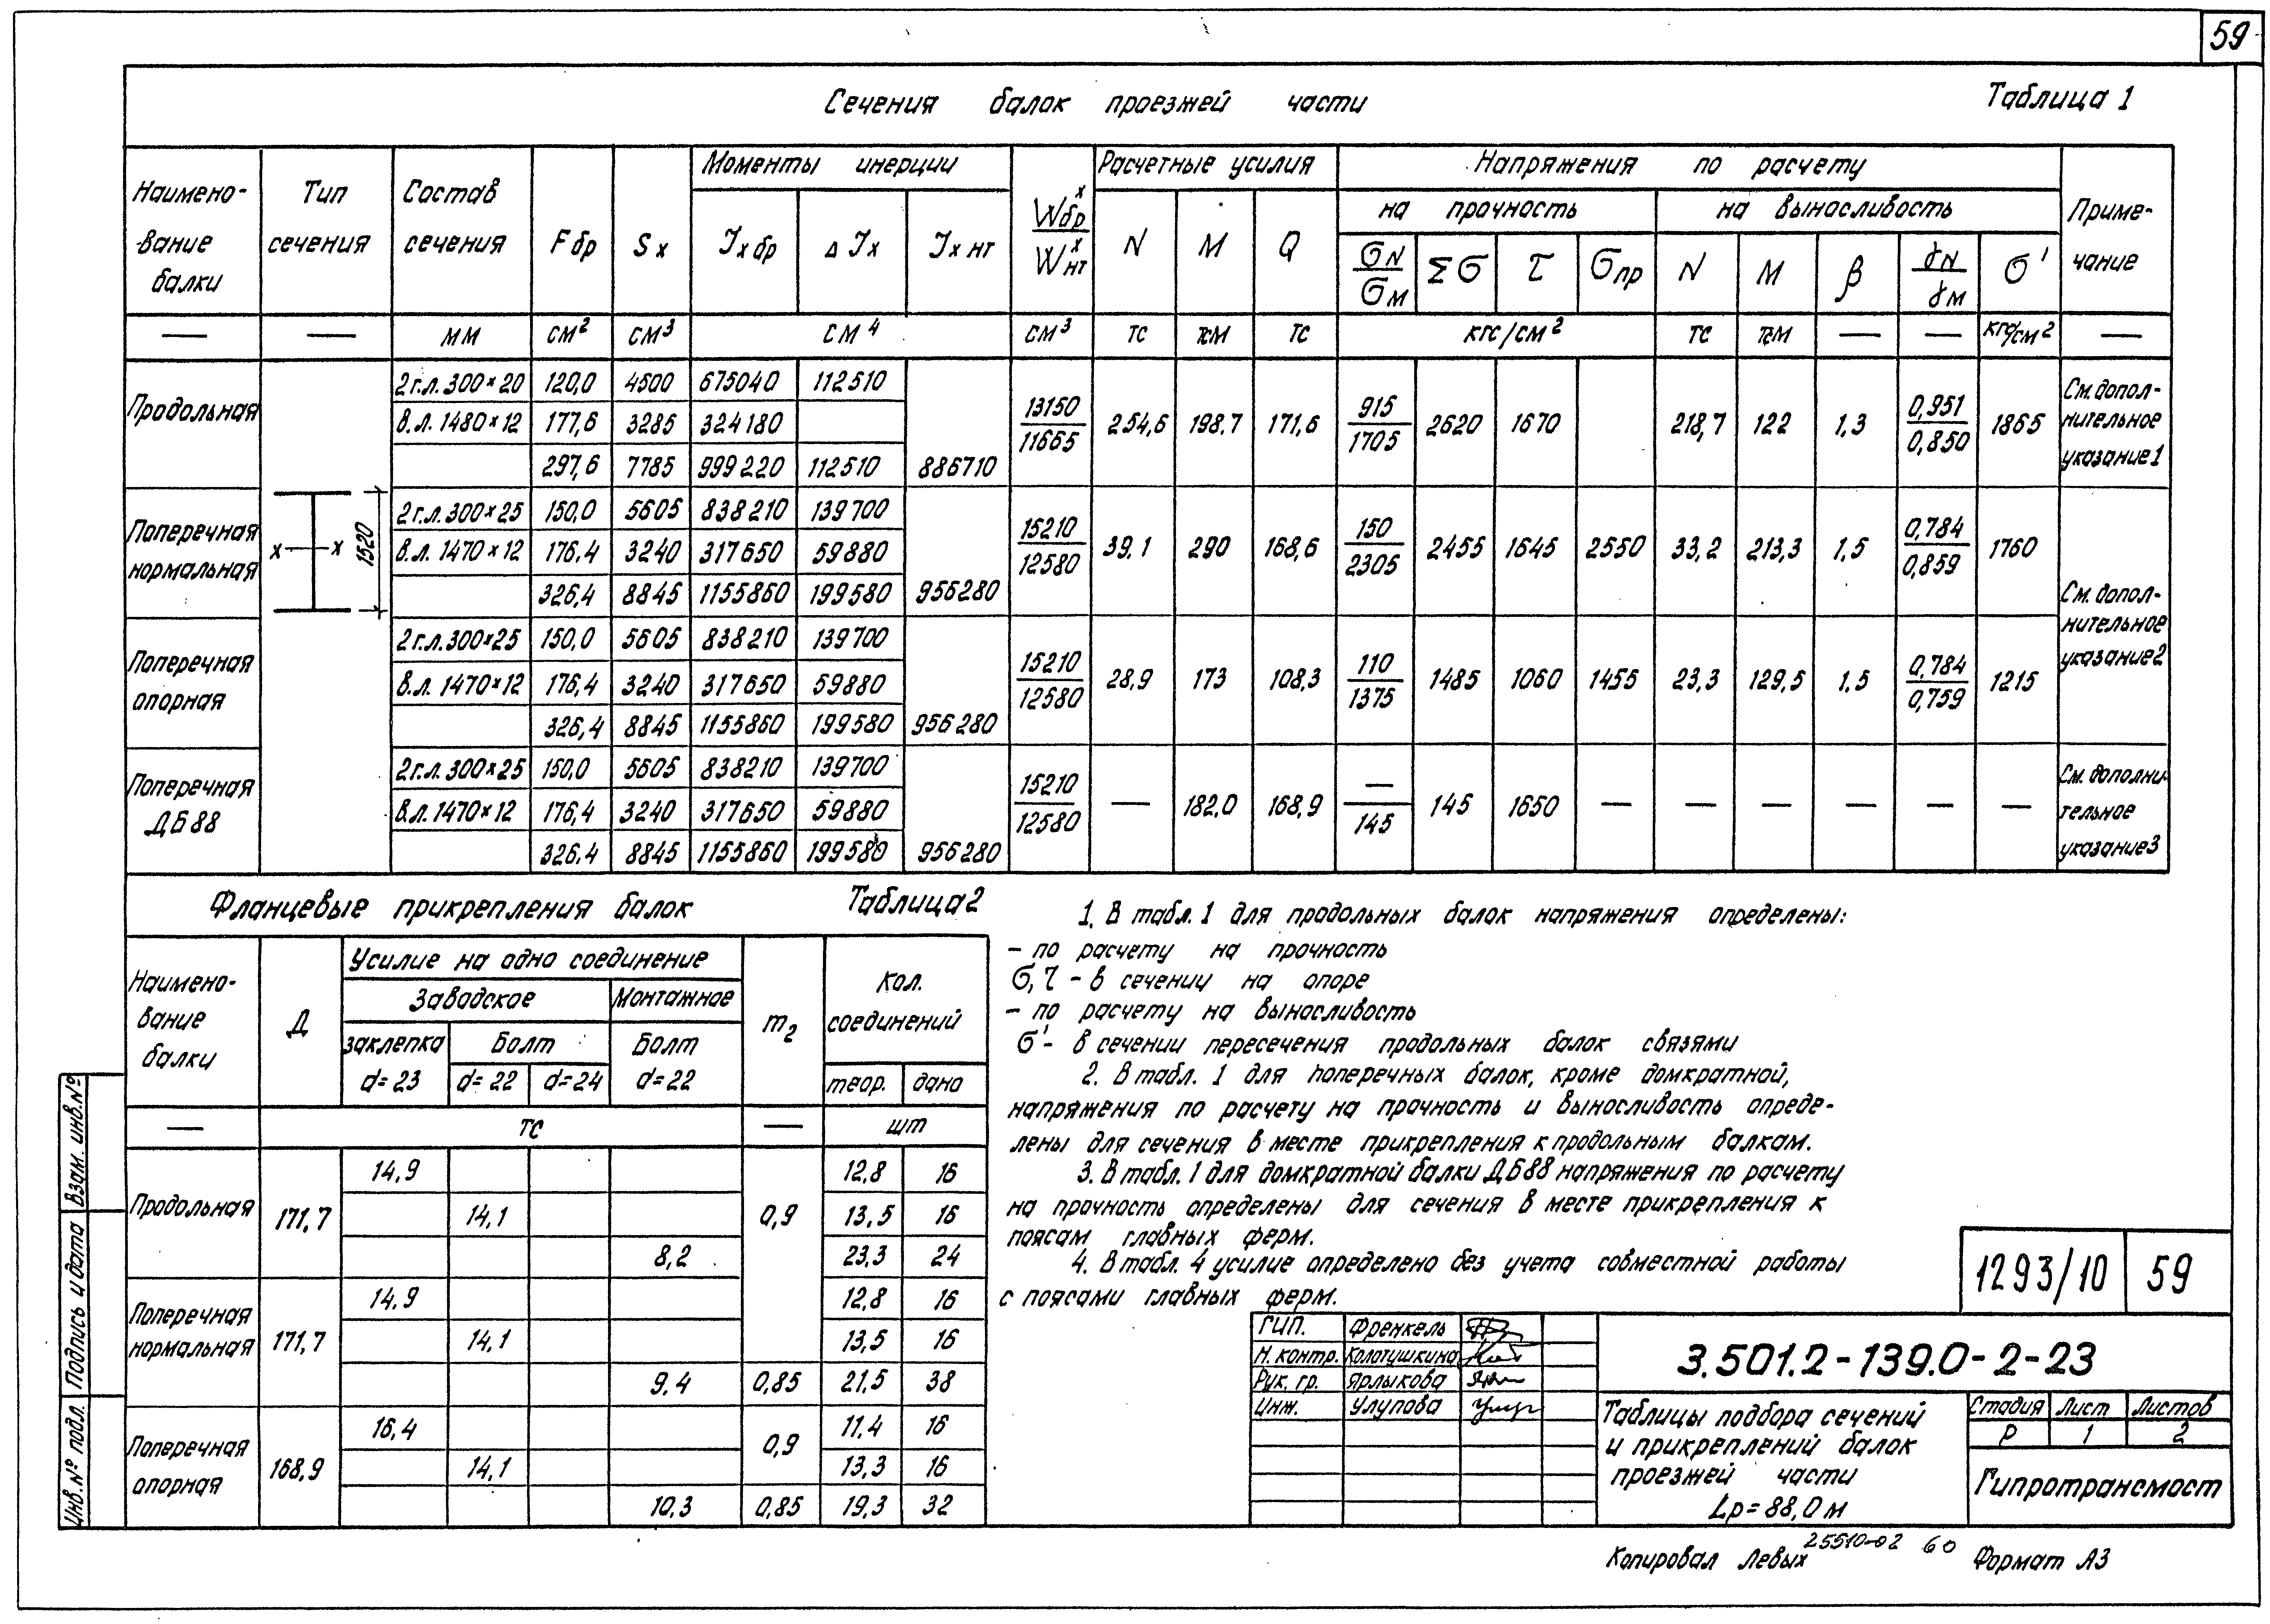 59
Сечения балок проезжей части
Таблица 1
Наимено-вание балки | Тип сечения | Состав сечения | Fбр | Sx | Моменты инерции | Wбр^x / Wнт^x | Расчетные усилия | Напряжения по расчету | Приме-чание
Jx бр | Δ Jx | Jx нт | N | M | Q | на прочность | на выносливость
σN / σм | Σσ | τ | σпр | N | M | β | γN / γм | σ'
— | — | мм | см² | см³ | см⁴ | см³ | тс | тсм | тс | кгс/см² | тс | тсм | — | — | кгс/см² | —
Продольная
2г.л. 300×20 | 120,0 | 4500 | 675040 | 112510
в.л. 1480×12 | 177,6 | 3285 | 324180
297,6 | 7785 | 999220 | 112510 | 886710
13150/11665 | 254,6 | 198,7 | 171,6 | 915/1705 | 2620 | 1670 | 218,7 | 122 | 1,3 | 0,951/0,850 | 1865
См. допол-
нительное
указание 1
Поперечная
нормальная
x x 1520
2г.л. 300×25 | 150,0 | 5605 | 838210 | 139700
в.л. 1470×12 | 176,4 | 3240 | 317650 | 59880
326,4 | 8845 | 1155860 | 199580 | 956280
15210/12580 | 39.1 | 290 | 168,6 | 150/2305 | 2455 | 1645 | 2550 | 33,2 | 213,3 | 1,5 | 0,784/0,859 | 1760
Поперечная
опорная
2г.л. 300×25 | 150,0 | 5605 | 838210 | 139700
в.л. 1470×12 | 176,4 | 3240 | 317650 | 59880
326,4 | 8845 | 1155860 | 199580 | 956280
15210/12580 | 28,9 | 173 | 108,3 | 110/1375 | 1485 | 1060 | 1455 | 23,3 | 129,5 | 1,5 | 0,784/0,759 | 1215
См. допол-
нительное
указание 2
Поперечная
ДБ88
2г.л. 300×25 | 150,0 | 5605 | 838210 | 139700
в.л. 1470×12 | 176,4 | 3240 | 317650 | 59880
326,4 | 8845 | 1155860 | 199580 | 956280
15210/12580 | — | 182,0 | 168,9 | —/145 | 145 | 1650 | — | — | — | — | — | —
См. дополни-
тельное
указание 3
Фланцевые прикрепления балок
Таблица 2
Наимено-вание балки | Д | Усилие на одно соединение | m₂ | Кол. соединений
Заводское | Монтажное
заклепка d=23 | Болт d=22 | d=24 | Болт d=22 | теор. | дано
— | тс | — | шт
Продольная | 171,7 | 14,9 | 0,9 | 12,8 | 16
14,1 | 13,5 | 16
8,2 | 23,3 | 24
Поперечная нормальная | 171,7 | 14,9 | 12,8 | 16
14,1 | 13,5 | 16
9,4 | 0,85 | 21,5 | 38
Поперечная опорная | 168,9 | 16,4 | 0,9 | 11,4 | 16
14,1 | 13,3 | 16
10,3 | 0,85 | 19,3 | 32
1. В табл. 1 для продольных балок напряжения определены:
– по расчету на прочность
σ, τ – в сечении на опоре
– по расчету на выносливость
σ' – в сечении пересечения продольных балок связями
2. В табл. 1 для поперечных балок, кроме домкратной,
напряжения по расчету на прочность и выносливость опреде-
лены для сечения в месте прикрепления к продольным балкам.
3. В табл. 1 для домкратной балки ДБ88 напряжения по расчету
на прочность определены для сечения в месте прикрепления к
поясам главных ферм.
4. В табл. 4 усилие определено без учета совместной работы
с поясами главных ферм.
1293/10 | 59
ГИП. Френкель
Н. контр. Колотушкина
Рук. гр. Ярлыкова
Инж. Улупова
3.501.2-139.0-2-23
Таблицы подбора сечений
и прикреплений балок
проезжей части
Lр = 88,0 м
Стадия | Лист | Листов
Р | 1 | 2
Гипротрансмост
Взам. инв. №
Подпись и дата
Инв. № подл.
25510-02 60
Копировал Левых
Формат А3